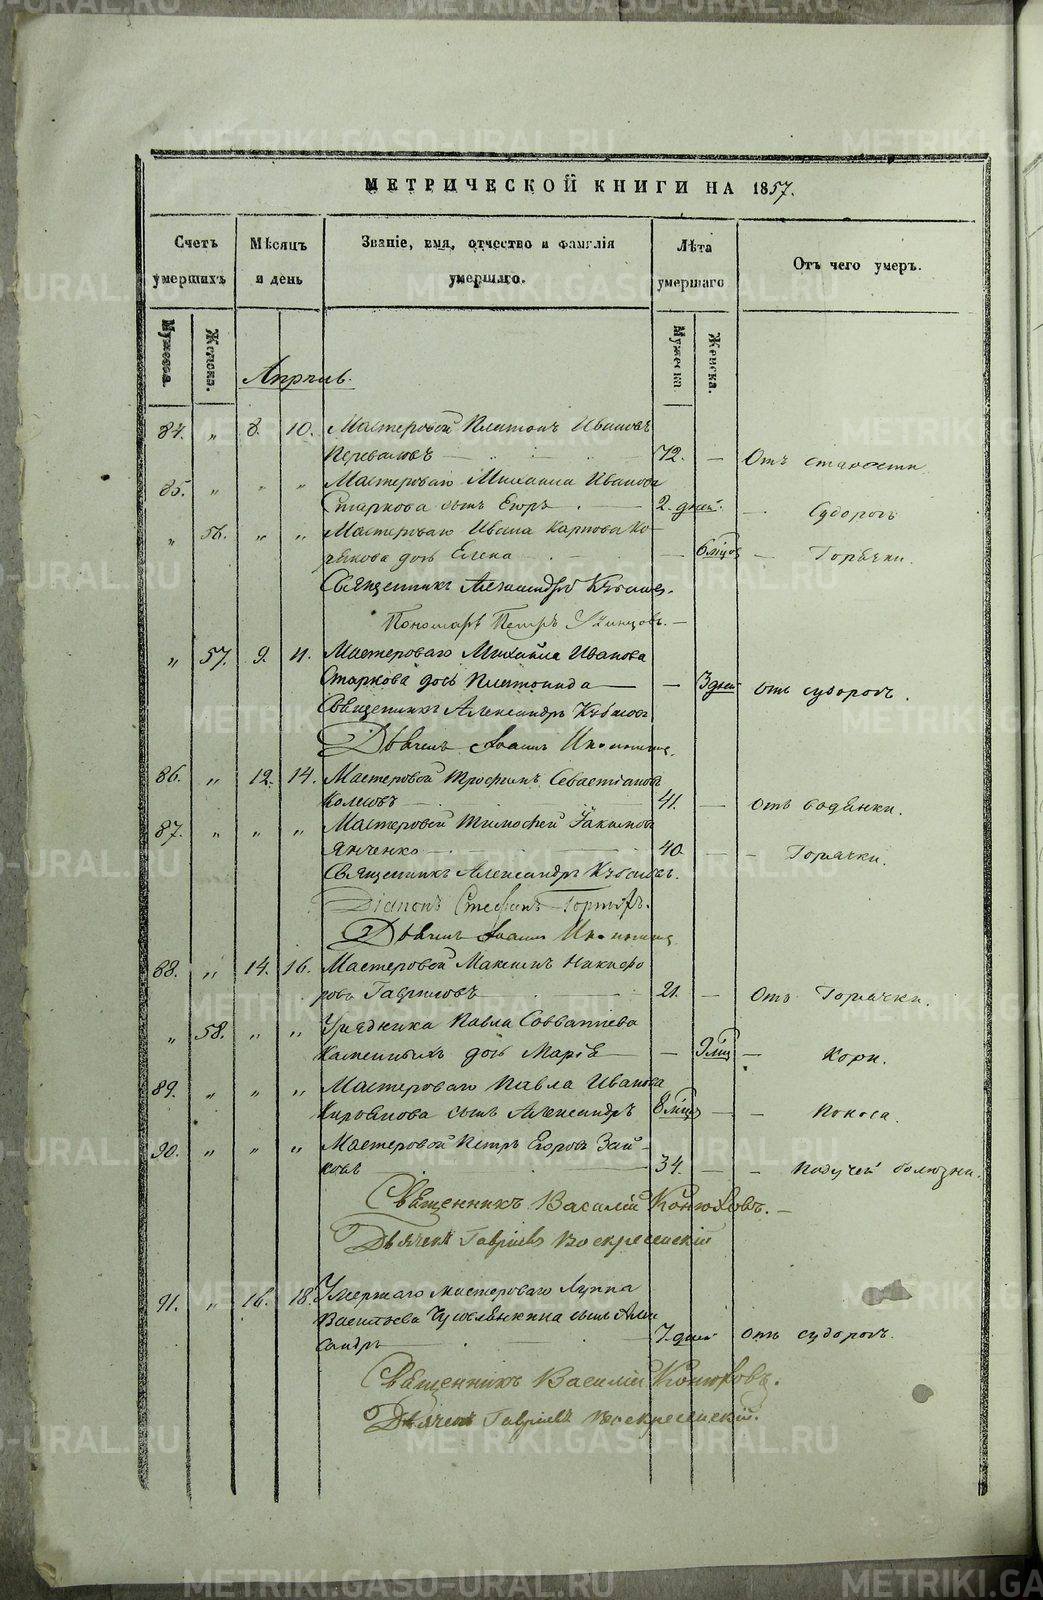 МЕТРИЧЕСКОЙ КНИГИ НА 1857.
Счетъ умершихъ
Мѣсяцъ и день
Званіе, имя, отчество и фамилія умершаго.
Лѣта умершаго
Отъ чего умеръ.
Мужеска.
Женска.
Мужеска
Женска.
Апрѣль.
84. „ 8. 10. Мастеровой Платонъ Ивановъ
72. — Отъ старости
85. „ „ „ Мастероваго Михаила Иванова
Старкова сынъ Егоръ 2. дней. — Судорогъ
„ 56. „ „ Мастероваго Ивана Карпова Ко-
дочь Елена — 6 мѣсяц — Горячки.
Священникъ Александръ
Пономарь Петръ
„ 57. 9. 11. Мастероваго Михайла Иванова
Старкова дочь Платонида — — 3 дней отъ судорогъ.
Священникъ Александръ
Дьячекъ Іоаннъ
86. „ 12. 14. Мастеровой Трофимъ Севастіановъ
41. — отъ водянки.
87. „ „ „ Мастеровой Тимофей
Янченко 40 — — Горячки.
Священникъ Александръ
Діаконъ Стефанъ
Дьячекъ Іоаннъ
88. „ 14. 16. Мастеровой Максимъ Никифо
ровъ Гавриловъ 21. — Отъ Горячки.
„ 58. „ „ Урядника Павла Савватіева
Каменныхъ дочь Марія — — 9 мѣц — Кори.
89. „ „ „ Мастероваго Павла Иванова
сынъ Александръ 8 мѣц — — Поноса.
90. „ „ „ Мастеровой Петръ Егоровъ Зай-
ковъ 34. — — падучей болѣзни.
Священникъ Василій Конюховъ. —
Дьячекъ Гавріилъ Воскресенскій
91. „ 16. 18. Умершаго мастероваго Луппа
Васильева сынъ Алек
сандръ 7. дней отъ судорогъ.
Священникъ Василій Конюховъ.
Дьячекъ Гавріилъ Воскресенскій.
METRIKI.GASO-URAL.RU